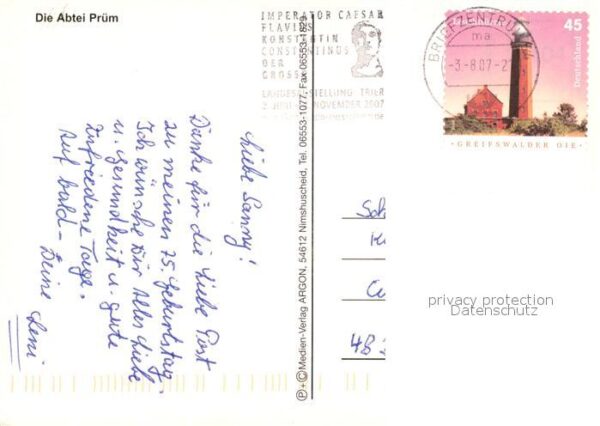 Die Abtei Prüm
IMPERATOR CAESAR
FLAVIUS
KONSTANTIN
CONSTANTINUS
DER
GROSSE
LANDESAUSSTELLUNG TRIER
2. JUNI - 4. NOVEMBER 2007
BRIEFZENTRUM
ma
-3.-8.07-2
Leuchttürme
45
Deutschland
· GREIFSWALDER OIE ·
Liebe Sanny!
Danke für die liebe Post
zu meinen 75. Geburtstag.
Ich wünsche Dir alles Liebe
u. Gesundheit u. gute
zufriedene Tage.
Auf bald –
Deine Leni
Ⓟ+©Medien-Verlag ARGON, 54612 Nimshuscheid, Tel. 06553-1077, Fax 06553-1829
48
privacy protection
Datenschutz